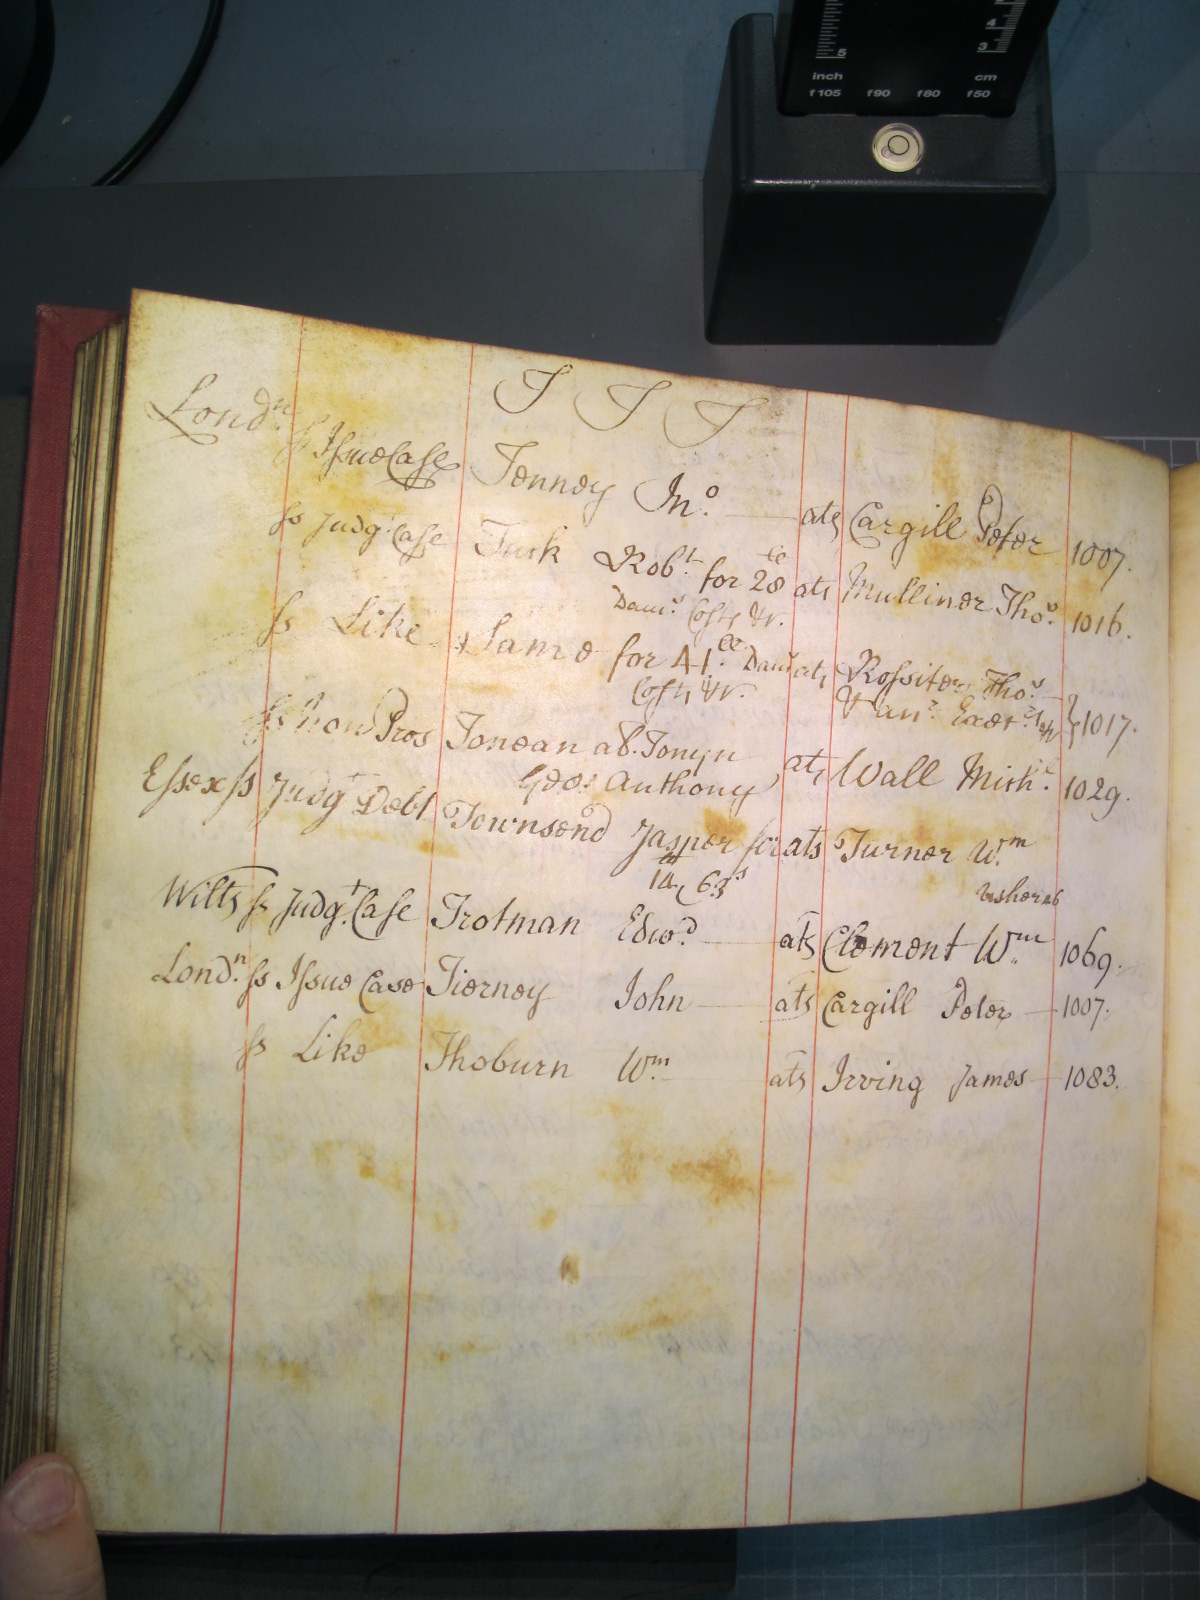 5 4 3
inch cm
f105 f90 f80 f50
T T T
Lond.n ss Issue Case Tenney Jn.o ats Cargill Peter 1007.
ss Judg.t Case Turk Rob.t for 28 ats Mulliner Tho.s 1016.
Dam.s Costs &c.
ss Like Same for 41 Dam.s ats Rossiter Tho.s
Costs &c. & an.r Exōr.s 1017.
ss Non Pros Tonean als. Tonyn
Geo: Anthony ats Wall Mich.l 1029.
Essex ss Judg.t Debt Townsend Jasper for ats Turner W.m
14 63s
Wilts ss Judg.t Case Trotman Edw.d ats Clement W.m 1069.
Lond.n ss Issue Case Tierney John ats Cargill Peter 1007.
ss Like Thoburn W.m ats Irving James 1083.